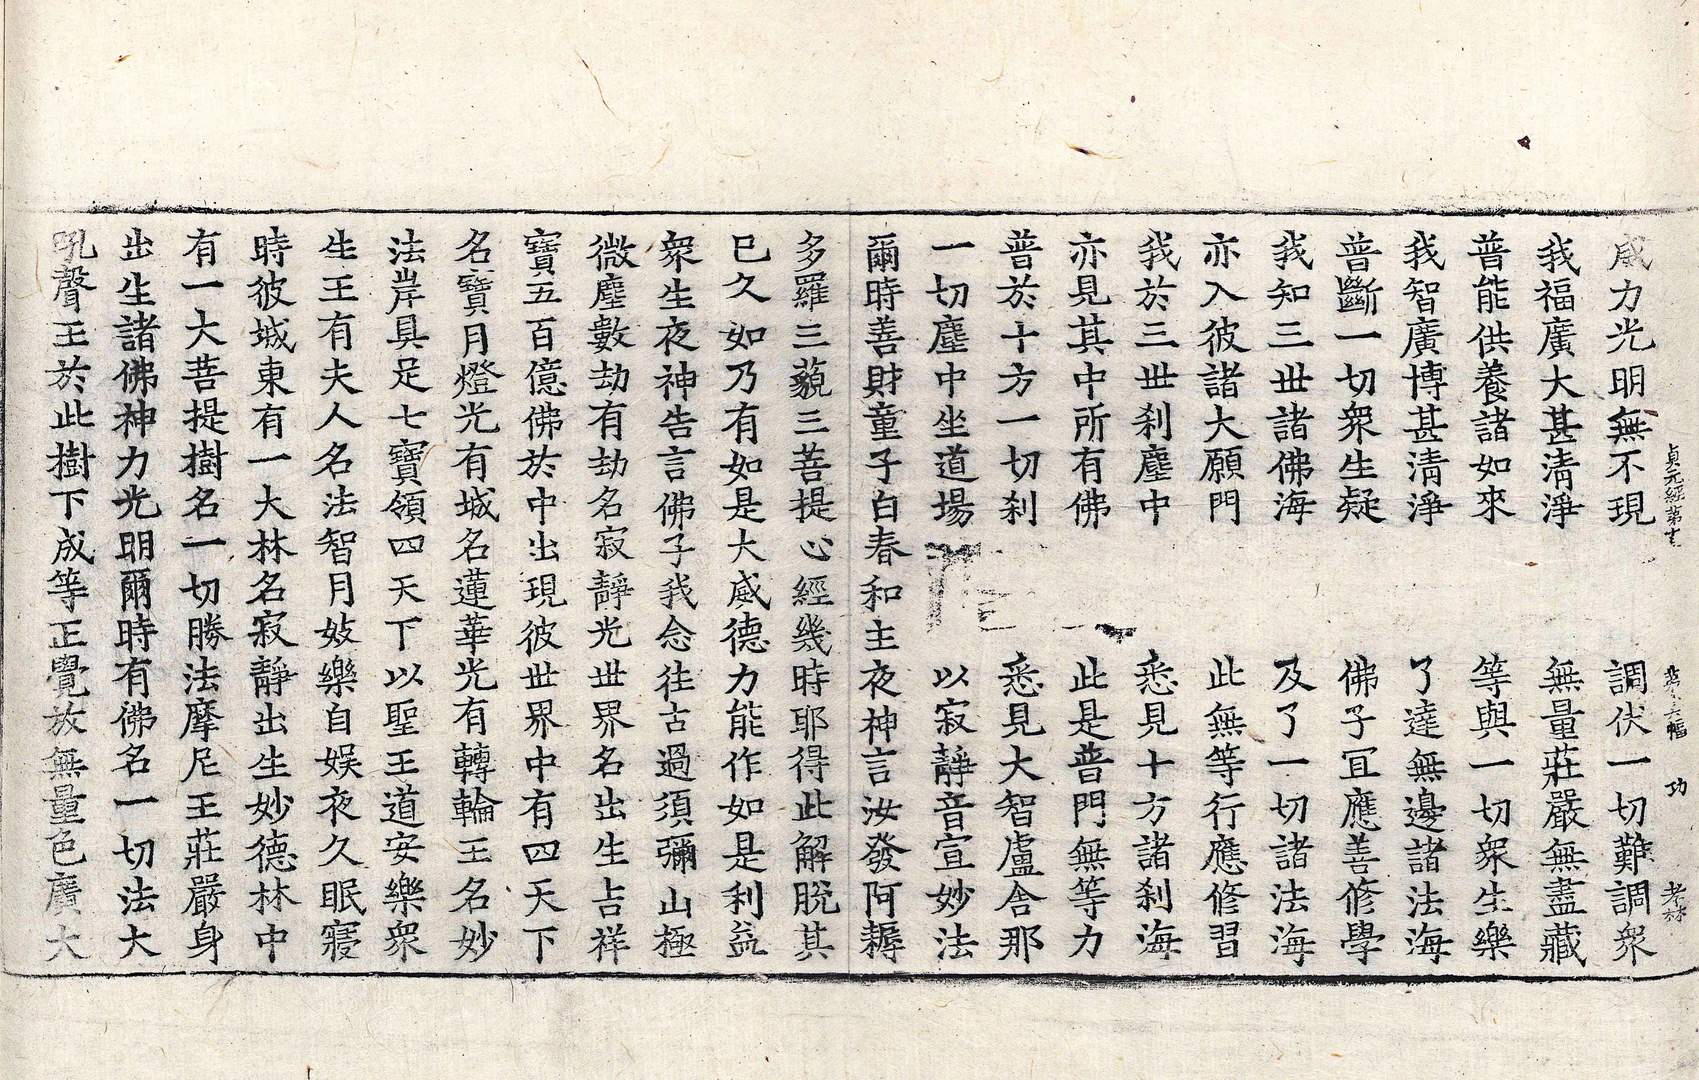 貞元經第
功
孝林
威力光明無不現　調伏一切難調衆
我福廣大甚清淨　無量莊嚴無盡藏
普能供養諸如來　等與一切衆生樂
我智廣博甚清淨　了達無邊諸法海
普斷一切衆生疑　佛子冝應善修學
我知三世諸佛海　及了一切諸法海
亦入彼諸大願門　此無等行應修習
我於三世刹塵中　悉見十方諸刹海
亦見其中所有佛　此是普門無等力
普於十方一切刹　悉見大智盧舍那
一切塵中坐道場　以寂靜音宣妙法
爾時善財童子白春和主夜神言汝發阿耨
多羅三藐三菩提心經幾時耶得此解脫其
已久如乃有如是大威德力能作如是利益
衆生夜神告言佛子我念往古過須彌山極
微塵數劫有劫名寂靜光世界名出生吉祥
寶五百億佛於中出現彼世界中有四天下
名寶月燈光有城名蓮華光有轉輪王名妙
法岸具足七寶領四天下以聖王道安樂衆
生王有夫人名法智月妓樂自娛夜久眠寢
時彼城東有一大林名寂靜出生妙德林中
有一大菩提樹名一切勝法摩尼王莊嚴身
出生諸佛神力光明爾時有佛名一切法大
吼聲王於此樹下成等正覺放無量色廣大